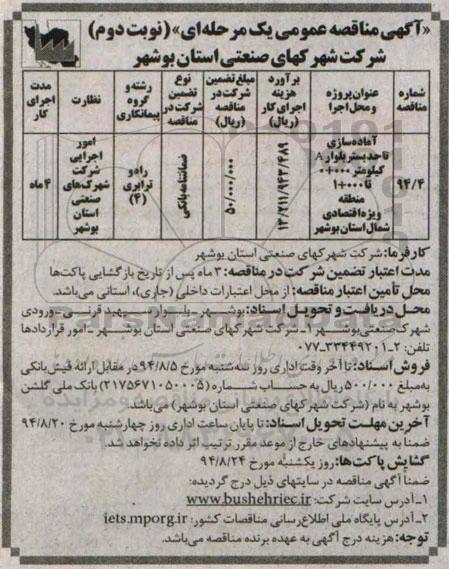 «آگهی مناقصه عمومی یک مرحله‌ای» (نوبت دوم)
شرکت شهرکهای صنعتی استان بوشهر
شماره مناقصه
عنوان پروژه و محل اجرا
برآورد هزینه اجرای کار (ریال)
مبلغ تضمین شرکت در مناقصه (ریال)
نوع تضمین شرکت در مناقصه
رشته و گروه پیمانکاری
نظارت
مدت اجرای کار
۹۴/۴
آماده‌سازی تا حد بستر بلوار A کیلومتر ۰+۰۰۰ تا ۱+۰۰۰ منطقه ویژه اقتصادی شمال استان بوشهر
۱۳/۲۱۱/۹۴۳/۴۸۹
۵۰/۰۰۰/۰۰۰
ضمانتنامه بانکی
راه و ترابری (۴)
امور اجرایی شرکت شهرک‌های صنعتی استان بوشهر
۴ ماه
کارفرما: شرکت شهرکهای صنعتی استان بوشهر
مدت اعتبار تضمین شرکت در مناقصه: ۳ ماه پس از تاریخ بازگشایی پاکت‌ها
محل تأمین اعتبار مناقصه: از محل اعتبارات داخلی (جاری)، استانی می‌باشد.
محل دریافت و تحویل اسناد: بوشهر ـ بلوار شهید قرنی ـ ورودی
شهرک صنعتی بوشهر ۱ـ شرکت شهرکهای صنعتی استان بوشهر ـ امور قراردادها
تلفن: ۲ـ۳۳۴۴۹۲۰۱ـ۰۷۷
فروش اسناد: تا آخر وقت اداری روز سه‌شنبه مورخ ۹۴/۸/۵ در مقابل ارائه فیش بانکی
به مبلغ ۵۰۰/۰۰۰ ریال به حساب شماره (۲۱۷۵۶۷۱۰۵۰۰۰۵) بانک ملی گلشن
بوشهر به نام (شرکت شهرکهای صنعتی استان بوشهر) می‌باشد.
آخرین مهلت تحویل اسناد: تا پایان ساعت اداری روز چهارشنبه مورخ ۹۴/۸/۲۰
ضمنا به پیشنهادهای خارج از موعد مقرر ترتیب اثر داده نخواهد شد.
گشایش پاکت‌ها: روز یکشنبه مورخ ۹۴/۸/۲۴
ضمناً آگهی مناقصه در سایتهای ذیل درج گردیده:
۱ـ آدرس سایت شرکت: www.bushehriec.ir
۲ـ آدرس پایگاه ملی اطلاع‌رسانی مناقصات کشور: iets.mporg.ir
توجه: هزینه درج آگهی به عهده برنده مناقصه می‌باشد.